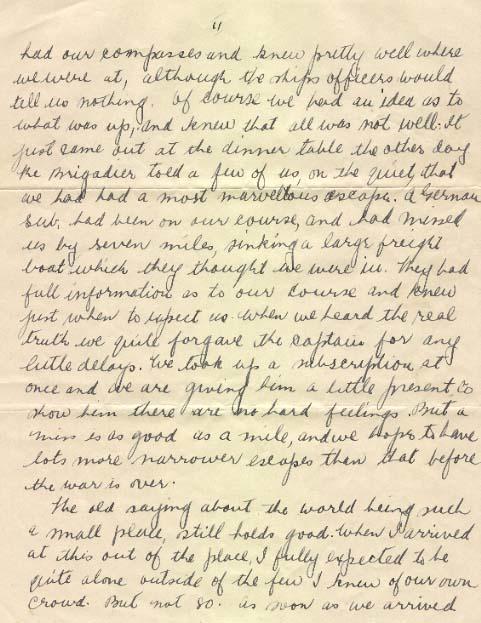 4
had our compasses and knew pretty well where
we were at, although the ships officers would
tell us nothing. Of course we had an idea as to
what was up, and knew that all was not well. It
just came out at the dinner table the other day
the Brigadier told a few of us, on the quiet, that
we had had a most marvellous escape. A German
Sub, had been on our course, and had missed
us by seven miles, sinking a large freight
boat which they thought we were in. They had
full information as to our course and knew
just when to expect us. When we heard the real
truth we quite forgave the captain for any
little delays. We took up a subscription at
once and we are giving him a little present to
show him there are no hard feelings. But a
miss is as good as a mile, and we hope to have
lots more narrower escapes than that before
the war is over.
The old saying about the world being such
a small place, still holds good. When I arrived
at this out of the place, I fully expected to be
quite alone outside of the few I knew of our own
crowd. But not so. As soon as we arrived